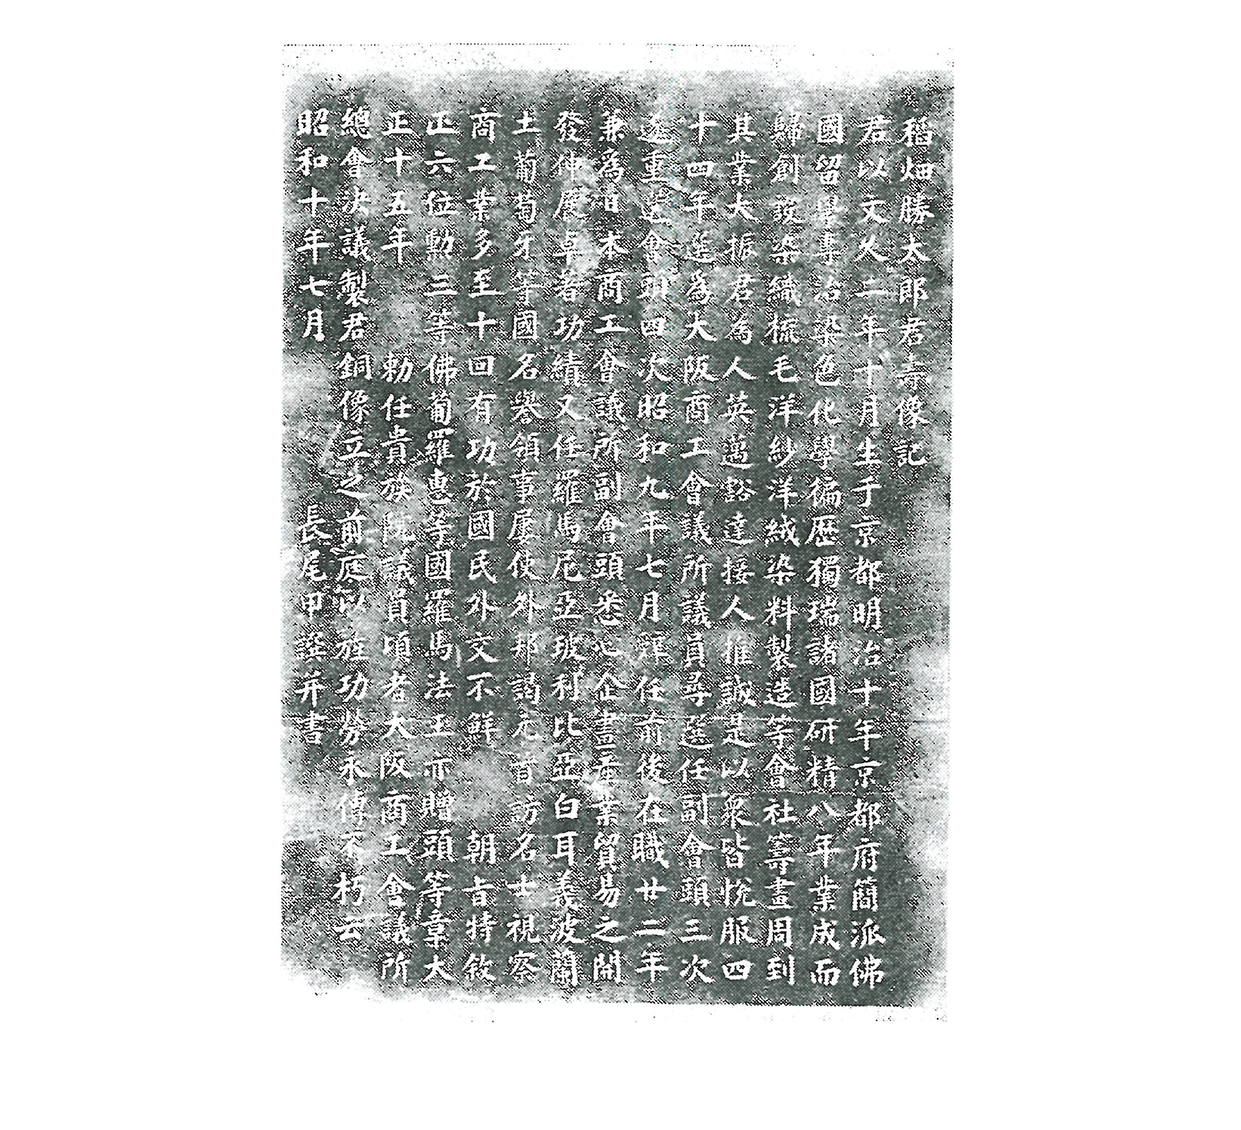 稻畑勝太郎君壽像記
君以文久二年十月生于京都明治十年京都府簡派佛
國留學專治染色化學徧歷獨瑞諸國研精八年業成而
歸創設染織梳毛洋紗洋絨染料製造等會社籌畫周到
其業大振君為人英邁豁達接人推誠是以衆皆悅服四
十四年選爲大阪商工會議所議員尋選任副會頭三次
重選會頭四次昭和九年七月任前後在職廿二年
兼爲日本商工會議所副會頭悉心企畫產業貿易之開
發伸卓著功績又任羅馬尼亞玻利比亞白耳義波蘭
土葡萄牙等國名譽領事屢使外邦謁元首訪名士視察
商工業多至十回有功於國民外交不鮮　朝旨特敘
正六位勳三等佛葡羅惠等國羅馬法王亦贈頭等章大
正十五年　勅任貴族院議員頃者大阪商工會議所
總會決議製君銅像立之前庭以旌功勞永傳不朽云
昭和十年七月　長尾甲譔并書